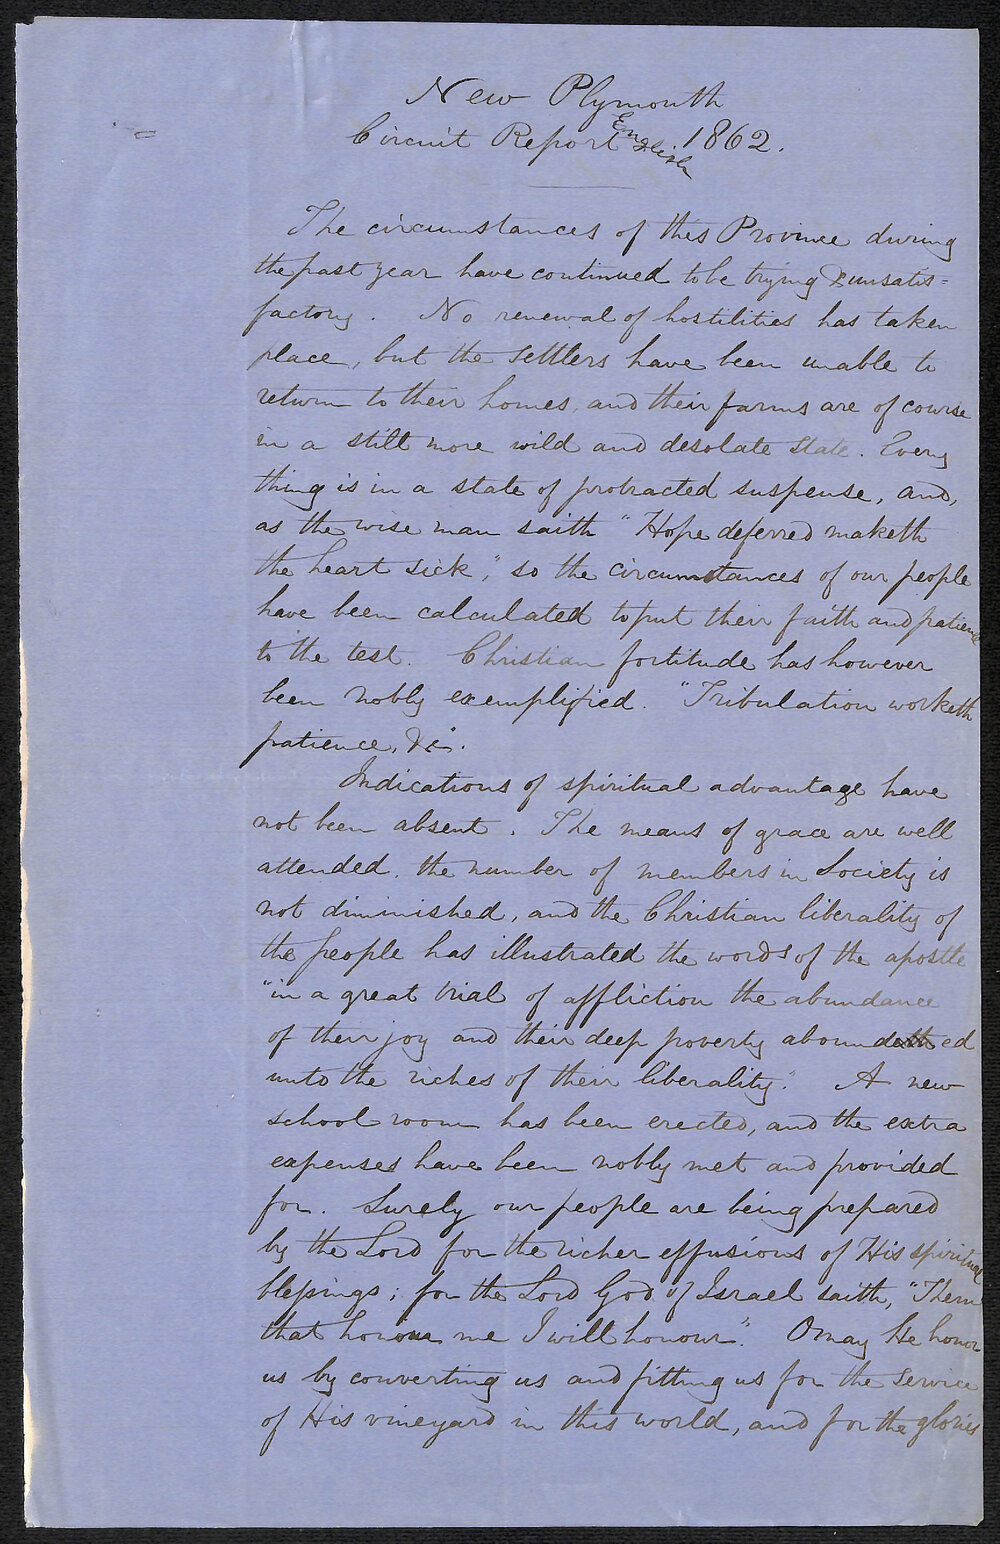 New Plymouth
Circuit Report English 1862.
The circumstances of this Province during
the past year have continued to be trying & unsatis=
factory. No renewal of hostilities has taken
place, but the settlers have been unable to
return to their homes, and their farms are of course
in a still more wild and desolate state. Every
thing is in a state of protracted suspense, and,
as the wise man saith "Hope deferred maketh
the heart sick," so the circumstances of our people
have been calculated to put their faith and patience
to the test. Christian fortitude has however
been nobly exemplified. "Tribulation worketh
patience, &c".
Indications of spiritual advantage have
not been absent. The means of grace are well
attended, the number of members in Society is
not diminished, and the Christian liberality of
the people has illustrated the words of the apostle
"in a great trial of affliction the abundance
of their joy and their deep poverty abounded
unto the riches of their liberality." A new
school room has been erected, and the extra
expenses have been nobly met and provided
for. Surely our people are being prepared
by the Lord for the richer effusions of His spiritual
blessings; for the Lord God of Israel saith, "Them
that honour me I will honour". O may He honor
us by converting us and fitting us for the service
of His vineyard in this world, and for the glories